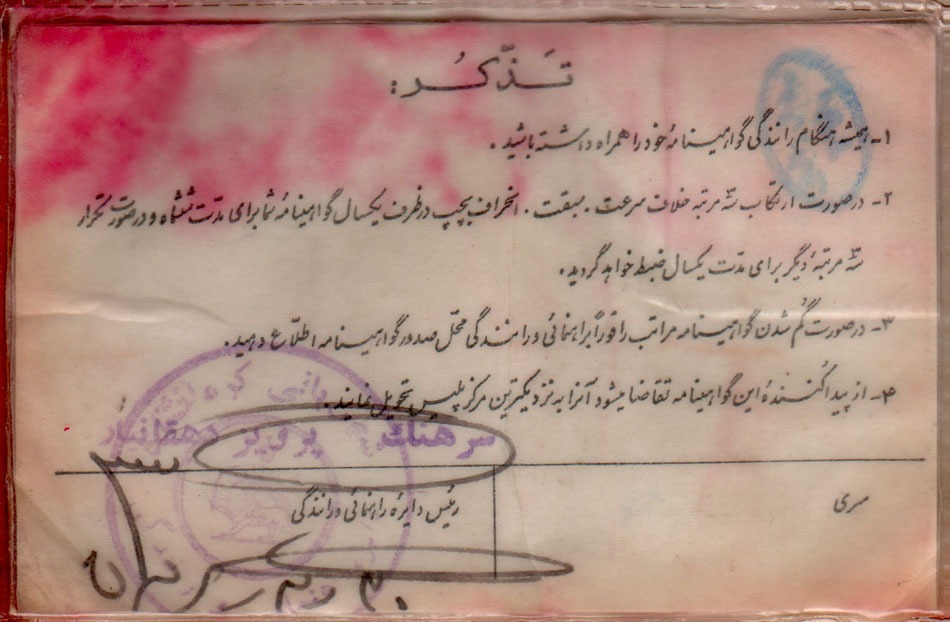 تَذکُّر :
۱- همیشه هنگام رانندگی گواهینامهٔ خود را همراه داشته باشید .
۲- در صورت ارتکاب سه مرتبه خلاف سرعت . سبقت . انحراف بچپ در ظرف یکسال گواهینامهٔ شما برای مدت ششماه و در صورت تکرار
سه مرتبهٔ دیگر برای مدت یکسال ضبط خواهد گردید .
۳- در صورت گم شدن گواهینامه مراتب را فوراً براهنمائی و رانندگی محل صدور گواهینامه اطلاع دهید .
۴- از پیدا کنندهٔ این گواهینامه تقاضا میشود آنرا به نزدیکترین مرکز پلیس تحویل نمایند .
سرهنگ پرویز دهقانیار
سری
رئیس دایرهٔ راهنمائی و رانندگی